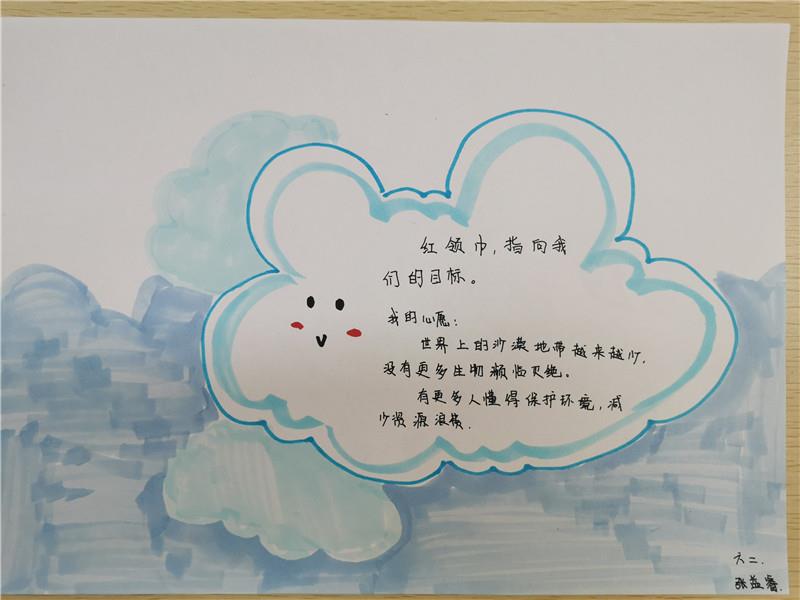 红领巾,指向我
们的目标。
我的心愿:
世界上的沙漠地带越来越少,
没有更多生物濒临灭绝。
有更多人懂得保护环境,减
少资源浪费.
六二.
张益睿.